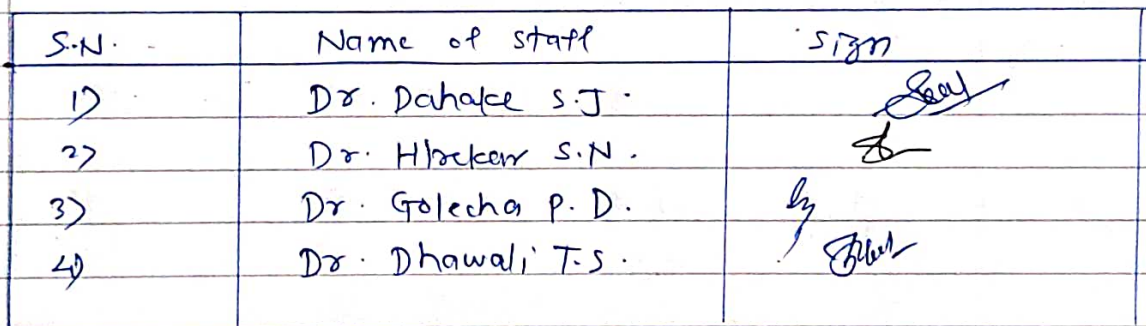 S.N. Name of staff Sign
1) Dr. Dahake S.J.
2) Dr. S.N.
3) Dr. Golecha P. D.
4) Dr. Dhawali T.S.